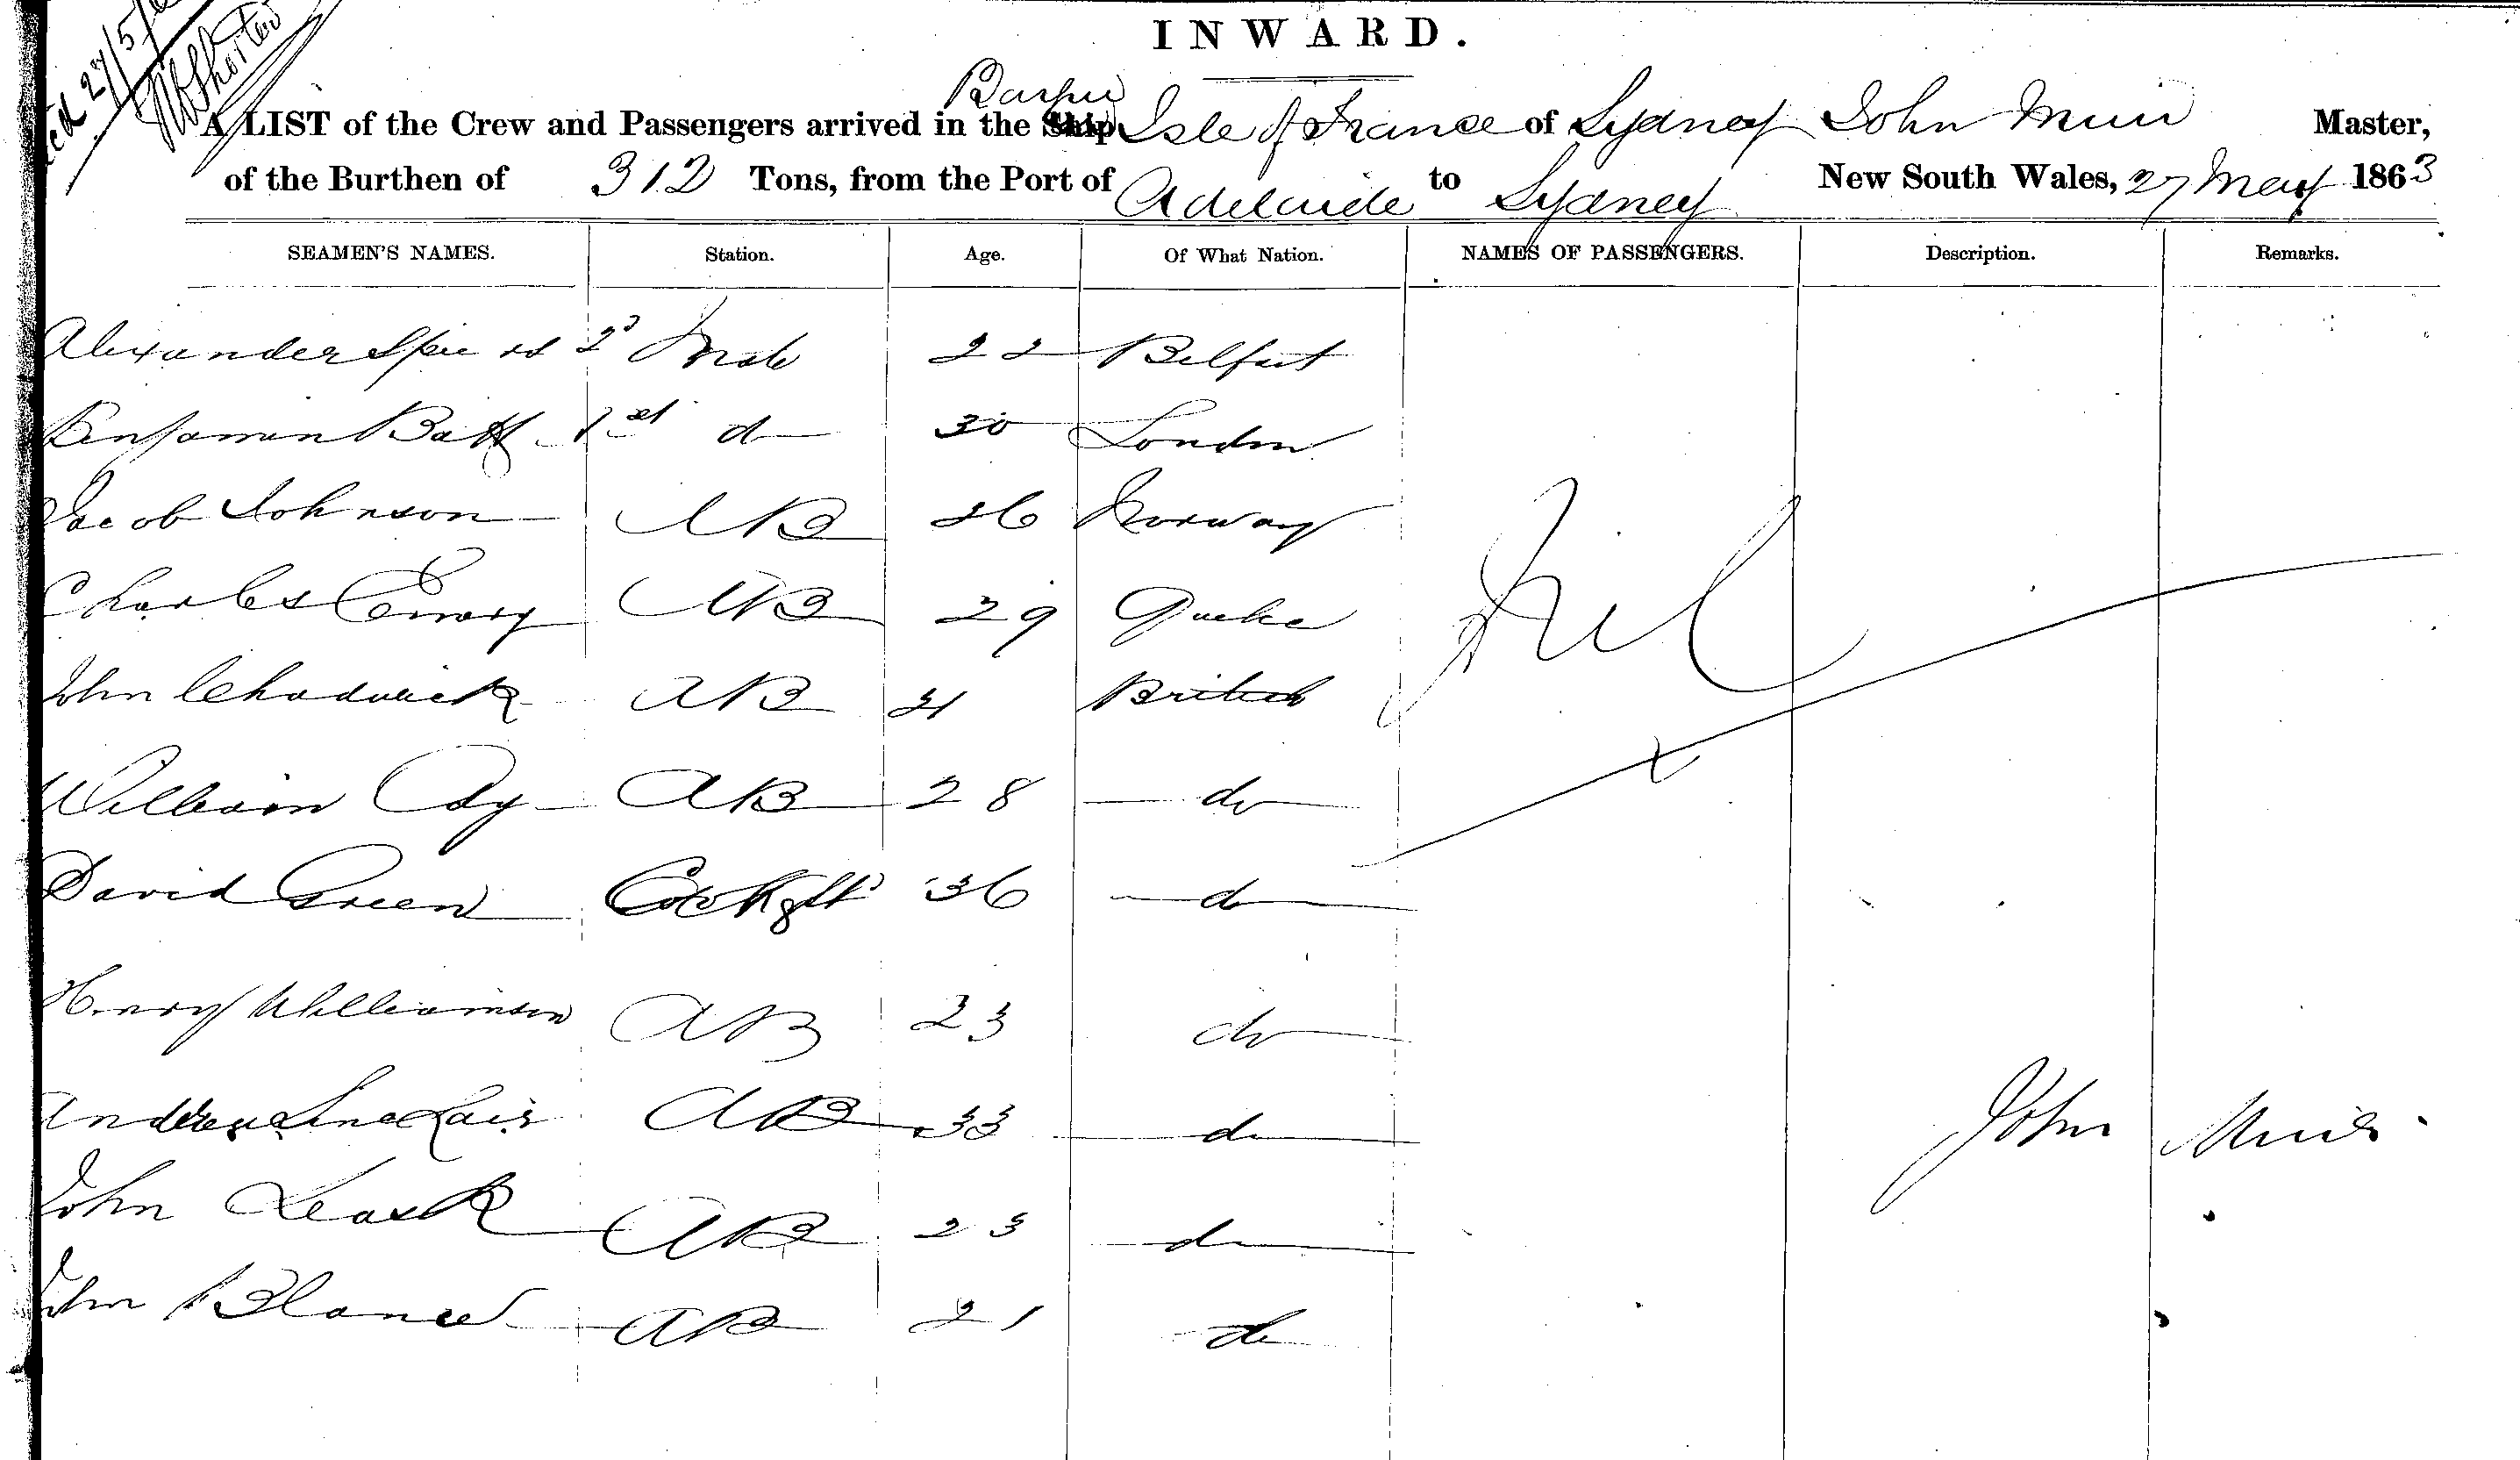 INWARD.
Barque
A LIST of the Crew and Passengers arrived in the Ship Isle of France of Sydney John Muir Master,
of the Burthen of 312 Tons, from the Port of Adelaide to Sydney New South Wales, 27 May 1863
SEAMEN'S NAMES. Station. Age. Of What Nation. NAMES OF PASSENGERS. Description. Remarks.
Alexander 2d Mate 22 Belfast
Benjamin Batt 1st do 30 London
Jacob Johnson AB 36 Norway
Charles AB 29
John Chadwick AB 21 British
Nil
William AB 28 do
David Green Cook & St 36 do
Henry Williamson AB 23 do
Andrew Sinclair AB 33 do
John Muir
John Leask AB 23 do
John Blance AB 21 do